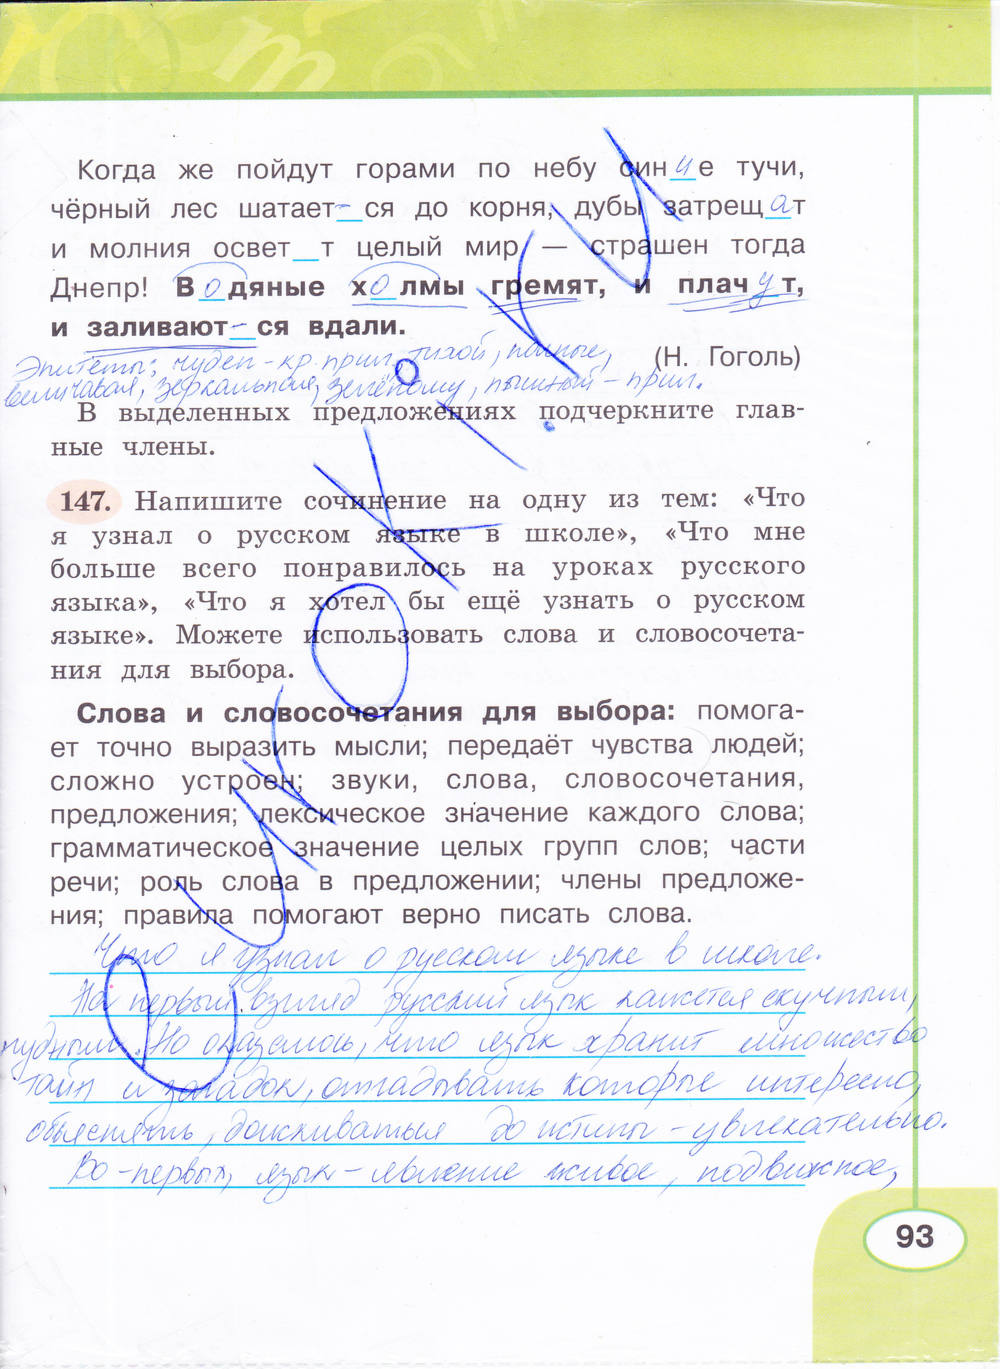 Когда же пойдут горами по небу синие тучи,
чёрный лес шатает-ся до корня, дубы затрещат
и молния освет_т целый мир — страшен тогда
Днепр! Водяные холмы гремят, и плачут,
и заливают-ся вдали.
(Н. Гоголь)
Эпитеты: чуден - кр. прил., тихой, полные,
величавая, зеркальная, зелёному, пышный - прил.
В выделенных предложениях подчеркните глав-
ные члены.
147. Напишите сочинение на одну из тем: «Что
я узнал о русском языке в школе», «Что мне
больше всего понравилось на уроках русского
языка», «Что я хотел бы ещё узнать о русском
языке». Можете использовать слова и словосочета-
ния для выбора.
Слова и словосочетания для выбора: помога-
ет точно выразить мысли; передаёт чувства людей;
сложно устроен; звуки, слова, словосочетания,
предложения; лексическое значение каждого слова;
грамматическое значение целых групп слов; части
речи; роль слова в предложении; члены предложе-
ния; правила помогают верно писать слова.
Что я узнал о русском языке в школе.
На первый взгляд русский язык кажется скучным,
нудным. Но оказалось, что язык хранит множество
тайн и загадок, отгадывать которые интересно,
объяснять, доискиваться до истины - увлекательно.
Во-первых, язык - явление живое, подвижное,
93